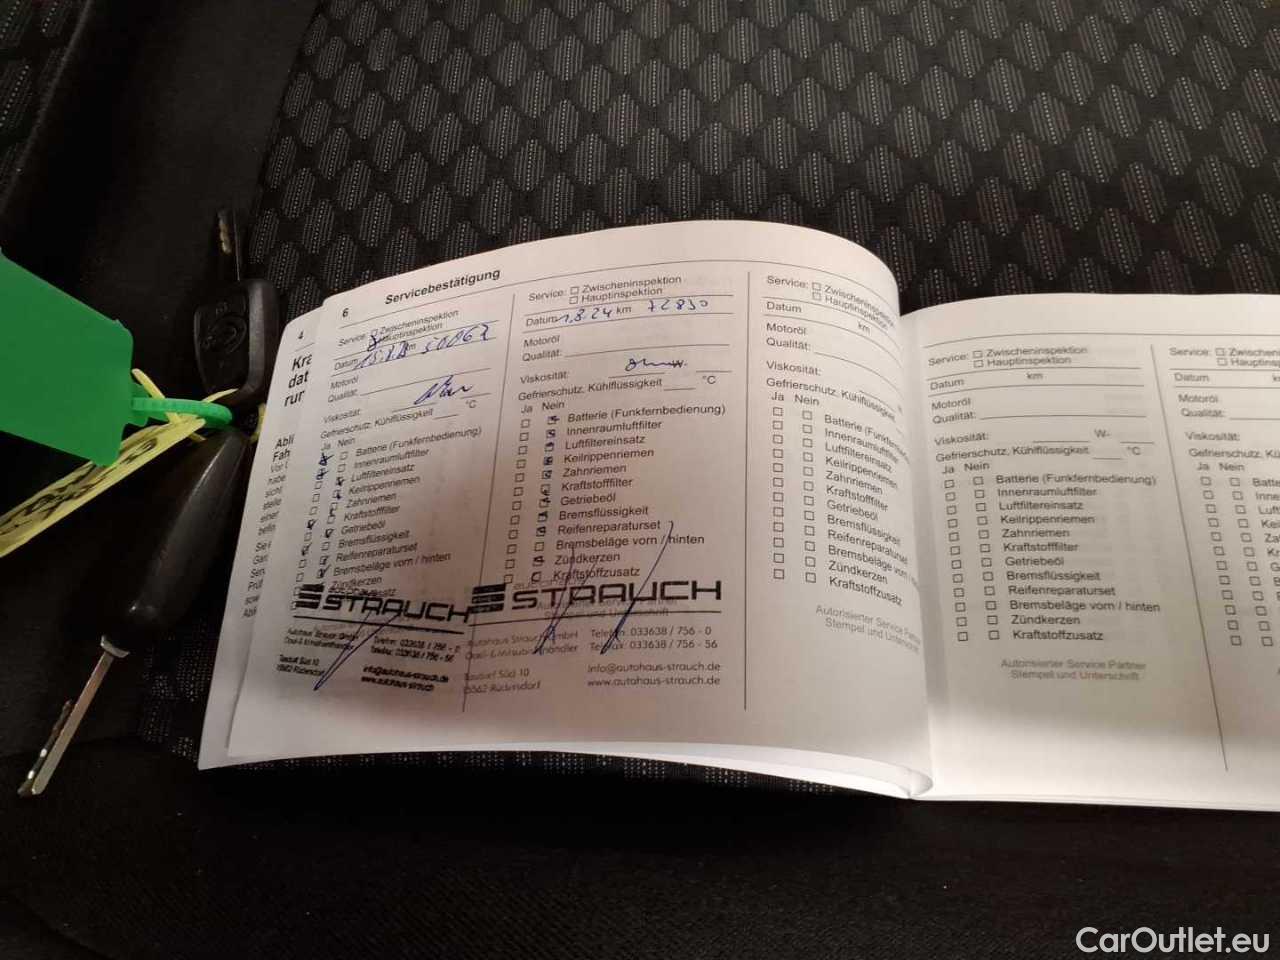 4
Kra
dat
rur
Abli
Fah
6
Servicebestätigung
Service: Zwischeninspektion
Hauptinspektion
Datum km 50067
Motoröl
Qualität:
Viskosität:
Gefrierschutz, Kühlflüssigkeit °C
Ja Nein
Batterie (Funkfernbedienung)
Innenraumluftfilter
Luftfiltereinsatz
Keilrippenriemen
Zahnriemen
Kraftstofffilter
Getriebeöl
Bremsflüssigkeit
Reifenreparaturset
Bremsbeläge vorn / hinten
Zündkerzen
STRAUCH
Autohaus Strauch GmbH
Telefon: 033638 / 756 - 0
Telefax: 033638 / 756 - 56
Tasdorf Süd 10
15562 Rüdersdorf
info@autohaus-strauch.de
www.autohaus-strauch
Service: Zwischeninspektion
Hauptinspektion
Datum 1.8.24 km 72830
Motoröl
Qualität:
Viskosität:
Gefrierschutz, Kühlflüssigkeit °C
Ja Nein
Batterie (Funkfernbedienung)
Innenraumluftfilter
Luftfiltereinsatz
Keilrippenriemen
Zahnriemen
Kraftstofffilter
Getriebeöl
Bremsflüssigkeit
Reifenreparaturset
Bremsbeläge vorn / hinten
Zündkerzen
Kraftstoffzusatz
STRAUCH
Autohaus Strauch GmbH
Telefon: 033638 / 756 - 0
Telefax: 033638 / 756 - 56
Tasdorf Süd 10
15562 Rüdersdorf
info@autohaus-strauch.de
www.autohaus-strauch.de
Service: Zwischeninspektion
Hauptinspektion
Datum km
Motoröl
Qualität:
Viskosität:
Gefrierschutz, Kühlflüssigkeit
Ja Nein
Batterie (Funkfernbedienung
Innenraumluftfilter
Luftfiltereinsatz
Keilrippenriemen
Zahnriemen
Kraftstofffilter
Getriebeöl
Bremsflüssigkeit
Reifenreparaturset
Bremsbeläge vorn / hinten
Zündkerzen
Kraftstoffzusatz
Autorisierter Service Partner
Stempel und Unterschrift
Service: Zwischeninspektion
Hauptinspektion
Datum km
Motoröl
Qualität:
Viskosität: W-
Gefrierschutz, Kühlflüssigkeit °C
Ja Nein
Batterie (Funkfernbedienung)
Innenraumluftfilter
Luftfiltereinsatz
Keilrippenriemen
Zahnriemen
Kraftstofffilter
Getriebeöl
Bremsflüssigkeit
Reifenreparaturset
Bremsbeläge vorn / hinten
Zündkerzen
Kraftstoffzusatz
Autorisierter Service Partner
Stempel und Unterschrift
Service: Zwischeninspektion
Hauptinspektion
Datum km
Motoröl
Qualität:
Viskosität:
Gefrierschutz, Kühlflüssig
Ja Nein
CarOutlet.eu